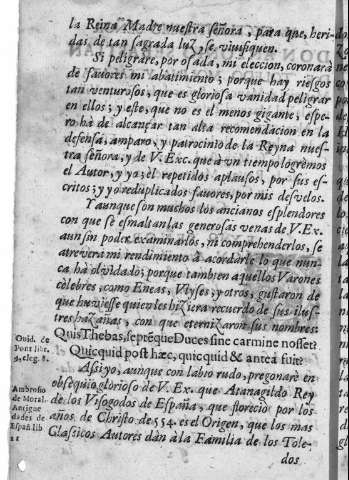 la Reina Madre nuestra señora, para que, heri-
das de tan sagrada luz, se viuifiquen.
Si peligràre, por osada, mi eleccion, coronarà
de fauores mi abatimiento; porque hay riesgos
tan venturosos, que es gloriosa vanidad peligrar
en ellos; y este, que no es el menos gigante, espe-
ro hà de alcançar tan alta recomendacion en la
defensa, amparo, y patrocinio de la Reyna nues-
tra señora, y de V. Exc. que à vn tiempo logrèmos
el Autor, y yo; el repetidos aplausos, por sus es-
critos; y yo reduplicados fauores, por mis desvelos.
Y aunque son muchos los ancianos esplendores
con que se esmaltan las generosas venas de V. Ex.
aun sin poder examinarlos, ni comprehenderlos, se
atreverà mi rendimiento à acordarle lo que nun-
ca hà olvidado; porque tambien aquellos Varones
cèlebres, como Eneas, Vlyses, y otros, gustaron de
que huviesse quien les hiziera recuerdo de sus ilus-
tres hazañas, con que eternizaron sus nombres:
Quis Thebas, septèque Duces sine carmine nosset?
Quicquid post hæc, quicquid & antea fuit?
Assi yo, aunque con labio rudo, pregonarè en
obsequio glorioso de V. Ex. que Atanagildo Rey
de los Visogodos de España, que floreciò por los
años de Christo de 554. es el Origen, que los mas
Classicos Autores dàn à la Familia de los Tole-
dos
Ouid. de
Pont. libr.
4. eleg. 8.
Ambrosio
de Moral.
Antigue
dades de
Españ. lib
11